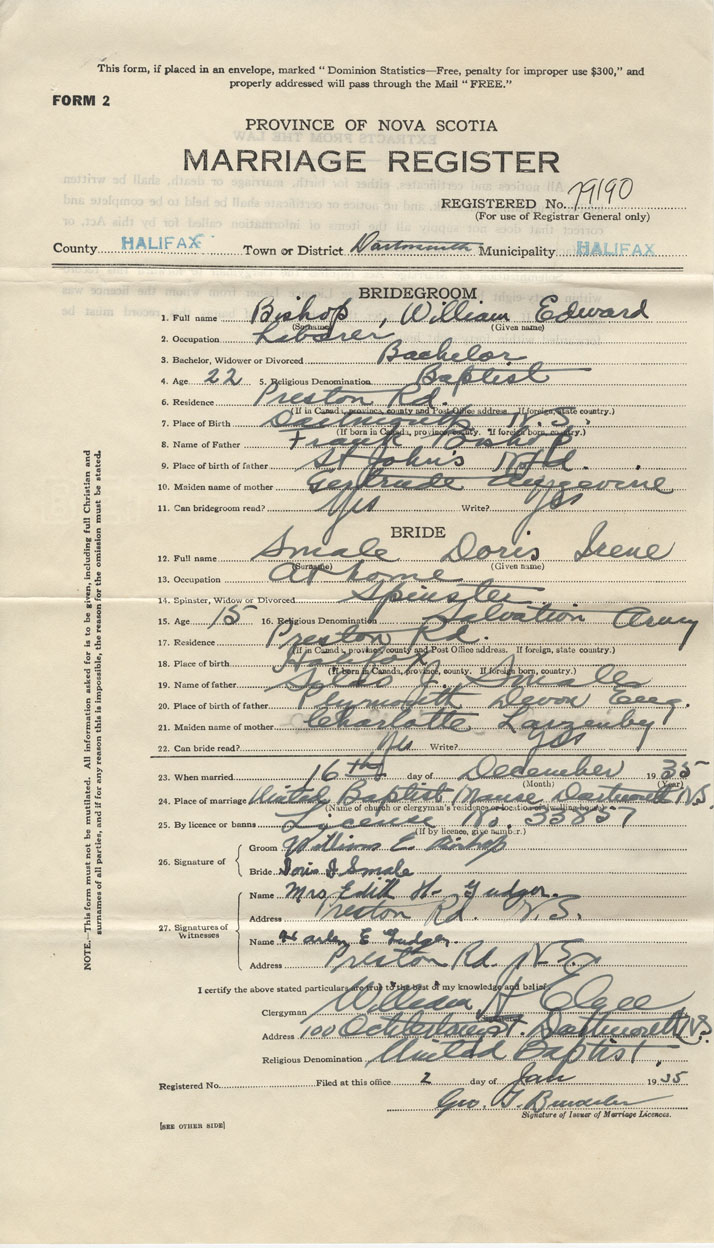 This form, if placed in an envelope, marked "Dominion Statistics—Free, penalty for improper use $300," and
properly addressed will pass through the Mail "FREE."
FORM 2
PROVINCE OF NOVA SCOTIA
MARRIAGE REGISTER
REGISTERED No. 79190
(For use of Registrar General only)
County HALIFAX Town or District Dartmouth Municipality HALIFAX
BRIDEGROOM
1. Full name Bishop, William Edward
(Surname) (Given name)
2. Occupation Laborer
3. Bachelor, Widower or Divorced Bachelor
4. Age 22 5. Religious Denomination Baptist
6. Residence Preston Rd.
(If in Canada, province, county and Post Office address. If foreign, state country.)
7. Place of Birth Dartmouth N.S.
(If born in Canada, province, county. If foreign born, country.)
8. Name of Father Frank Bishop
9. Place of birth of father St John's Nfld.
10. Maiden name of mother Gertrude
11. Can bridegroom read? Yes Write? Yes
BRIDE
12. Full name Smale Doris Irene
(Surname) (Given name)
13. Occupation At home
14. Spinster, Widow or Divorced Spinster
15. Age 15 16. Religious Denomination Salvation Army
17. Residence Preston Rd.
(If in Canada, province, county and Post Office address. If foreign, state country.)
18. Place of birth Halifax
(If born in Canada, province, county. If foreign born, country.)
19. Name of father J. Smale
20. Place of birth of father Plymouth Devon Eng.
21. Maiden name of mother Charlotte Lazenby
22. Can bride read? Yes Write? Yes
23. When married 16th day of December 1935
(Month) (Year)
24. Place of marriage United Baptist Manse Dartmouth N.S.
(Name of church or clergyman's residence or location of dwelling house)
25. By licence or banns License No. 33857
(If by licence, give number.)
26. Signature of
Groom William E. Bishop
Bride Doris I Smale
27. Signatures of Witnesses
Name Mrs Edith H. Gudger.
Address Preston Rd. N.S.
Name Harley E Gudger.
Address Preston Rd. N.S.
I certify the above stated particulars are true to the best of my knowledge and belief.
Clergyman William H Elgee
Address 100 Ochterloney St. Dartmouth N.S.
Religious Denomination United Baptist
Registered No. Filed at this office 2 day of Jan 1935
Geo. T.
Signature of Issuer of Marriage Licences.
[SEE OTHER SIDE]
NOTE.—This form must not be mutilated. All information asked for is to be given, including full Christian and
surnames of all parties, and if for any reason this is impossible, the reason for the omission must be stated.